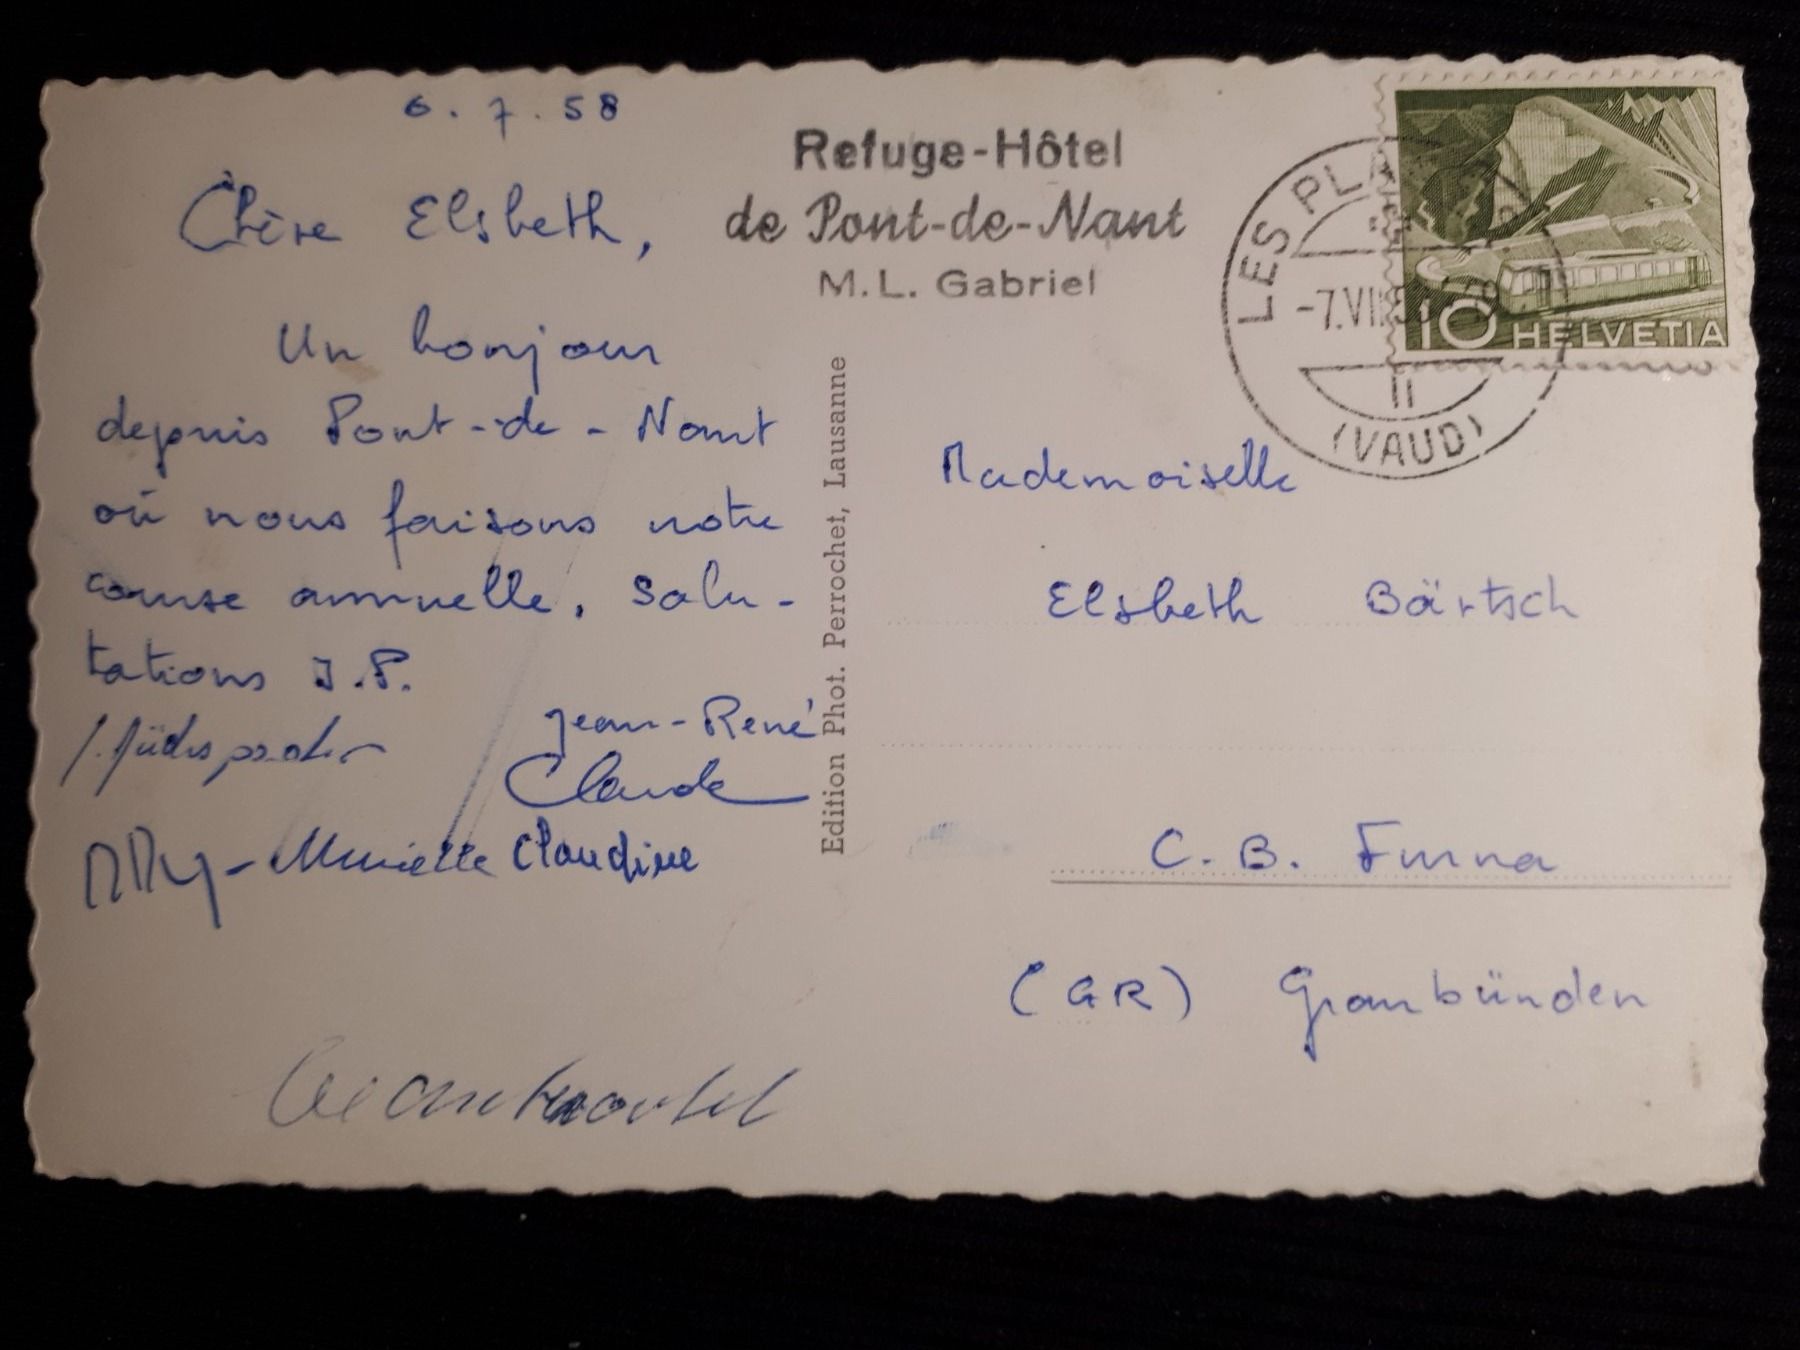 6. 7. 58
Chère Elsbeth,
Un bonjour
depuis Pont-de-Nant
où nous faisons notre
course annuelle. Salu-
tations J.P.
Jean-René
Claude
Murielle Claudine
Refuge-Hôtel
de Pont-de-Nant
M. L. Gabriel
Edition Phot. Perrochet, Lausanne
LES PL
-7.VII.58
(VAUD)
10 HELVETIA
Mademoiselle
Elsbeth Bärtsch
C. B. Furna
(GR) Graubünden